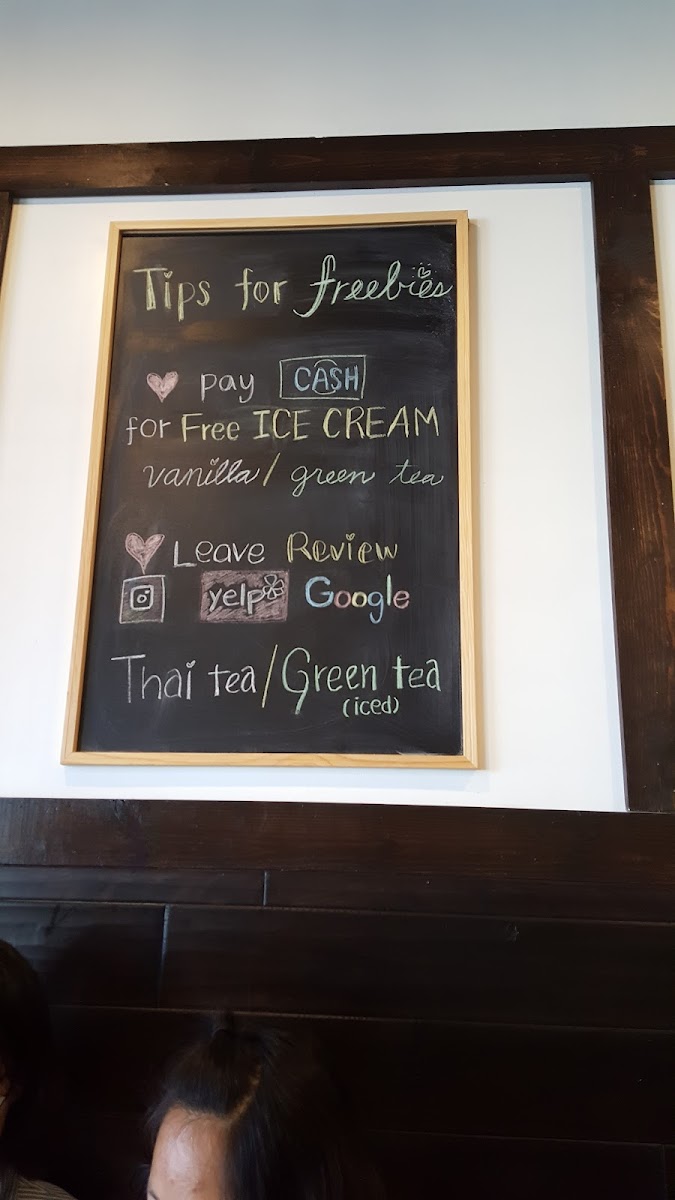 Tips for freebies
pay CASH
for Free ICE CREAM
vanilla / green tea
Leave Review
yelp Google
Thai tea / Green tea
(iced)